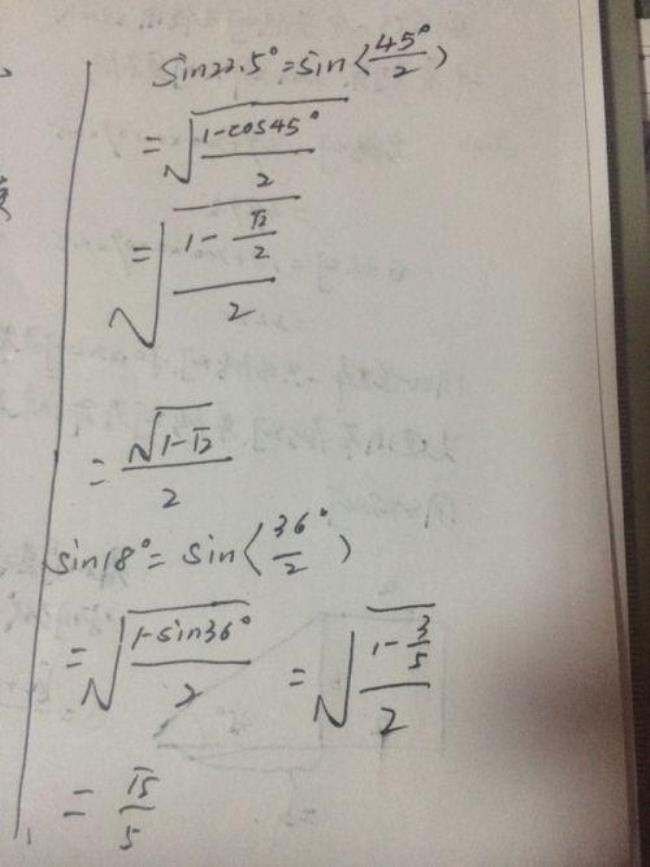 sin22.5°=sin(45°/2)
=√((1-cos45°)/2)
=√((1-√2/2)/2)
=√(1-√2)/2
sin18°=sin(36°/2)
=√((1-sin36°)/2) =√((1-3/5)/2)
=√5/5